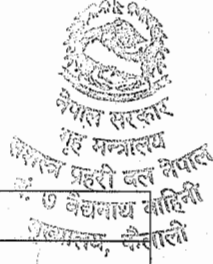 नेपाल सरकार
गृह मन्त्रालय
सशस्त्र प्रहरी बल नेपाल
नं ७ वैद्यनाथ बाहिनी
मुख्यालय,